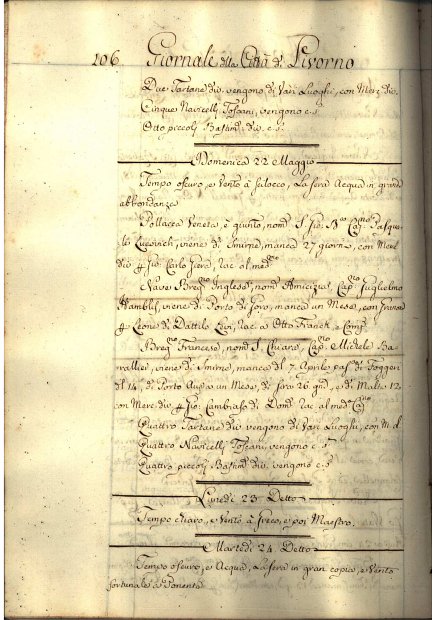 106 Giornale della Città di Livorno
Due Tartane div. vengono di Vari Luoghi, con Merz. div.
Cinque Navicelli Toscani, vengono c.s.
Otto piccoli Bastim. div. c.s.
Domenica 22 Maggio
Tempo oscuro, e Vento à scilocco, La sera Acqua in grand
abbondanza
Pollacca Veneta, è giunto, nom. S. Gio: Ba. Cap.no Pasqua-
le, viene di Smirne, manca 27 giorni, con Merc.
div. Gio: Carlo, rac. al med.mo
Nave Breg.no Inglese, nom. Amicizia, Cap.no Guglielmo
viene di Porto di Foro, manca un Mese, con
Leone di Dattilo, rac. a Otto Franck, e Comp.
Breg.no Francese, nom. S. Chiara, Cap.no Michele Ba-
viene di Smirne, manca dl 7 Aprile pas. di
dl 14, di Porto un Mese, di 26 gni, e di Malta 12
con Merc. div. Gio: Cambiaso di Dom. rac. al med. Cap.no
Quattro Tartane div. vengono di Vari Luoghi, con M. d.
Quattro Navicelli Toscani, vengono c.s.
Quattro piccoli Bastim. div. vengono c.s.
Lunedi 23 Detto
Tempo chiaro, e Vento à Greco, e poi Maestro.
Martedi 24 Detto
Tempo oscuro, e Acqua, La sera in gran copia, e Vento
fortunale à Ponente